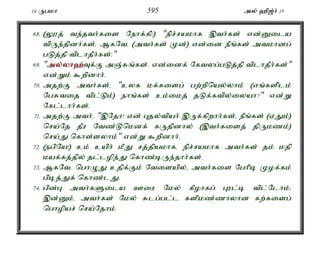 14 ருபமா 595 அல் ஹிஜ்ர் 15
68. (லூத் வந்தவர்களை நோக்கி:) "நிச்சயமாக இவர்கள் என்னுடைய
விருந்தினர்கள். ஆகவே, (அவர்கள் முன்) என்னை நீங்கள் அவமானப்
படுத்தி விடாதீர்கள்:"
69. "அல்லாஹ்வுக்கு அஞ்சுங்கள். என்னைக் கேவலப்படுத்தி விடாதீர்கள்"
என்றும் கூறினார்.
70. அதற்கு அவர்கள், "உலக மக்களைப் பற்றியெல்லாம் (எங்களிடம்
பேசுவதை விட்டும்) நாங்கள் உம்மைத் தடுக்கவில்லையா?" என்று
கேட்டார்கள்.
71. அதற்கு அவர், "இதோ! என் புதல்வியர் இருக்கிறார்கள், நீங்கள் (ஏதும்)
செய்தே தீர வேண்டுமெனக் கருதினால் (இவர்களைத் திருமணம்)
செய்து கொள்ளலாம்" என்று கூறினார்.
72. (நபியே!) உம் உயிர் மீது சத்தியமாக, நிச்சயமாக அவர்கள் தம் மதி
மயக்கத்தில் தட்டழிந்து கொண்டிருந்தார்கள்.
73. ஆகவே, பொழுது உதிக்கும் வேளையில், அவர்களை பேரிடி முழக்கம்
பிடித்துக் கொண்டது.
74. பின்பு அவர்களுடைய ஊரை மேல் கீழாகப் புரட்டி விட்டோம்;
இன்னும், அவர்கள் மேல் சுடப்பட்ட களிமண்ணாலான கற்களைப்
பொழியச் செய்தோம்.